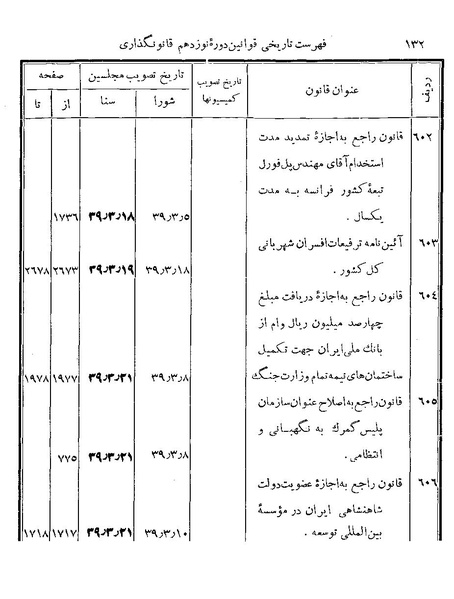 ۱۳۲ فهرست تاریخی قوانین دورهٔ نوزدهم قانونگذاری
ردیف عنوان قانون تاریخ تصویب کمیسیونها تاریخ تصویب مجلسین صفحه
شورا سنا از تا
۶۰۲ قانون راجع به اجازهٔ تمدید مدت
استخدام آقای مهندس پل فورل
تبعهٔ کشور فرانسه به مدت
یکسال . ۳۹٫۳٫۵ ۳۹٫۳٫۱۸ ۱۷۳۶
۶۰۳ آئین‌نامه ترفیعات افسران شهربانی
کل کشور . ۳۹٫۳٫۱۸ ۳۹٫۳٫۱۹ ۲۶۷۳ ۲۶۷۸
۶۰۴ قانون راجع به اجازهٔ دریافت مبلغ
چهارصد میلیون ریال وام از
بانك ملی ایران جهت تکمیل
ساختمان‌های نیمه تمام وزارت جنگ ۳۹٫۳٫۸ ۳۹٫۳٫۲۱ ۱۹۷۷ ۱۹۷۸
۶۰۵ قانون راجع به اصلاح عنوان سازمان
پلیس گمرك به نگهبانی و
انتظامی . ۳۹٫۳٫۸ ۳۹٫۳٫۲۱ ۷۷۵
۶۰۶ قانون راجع به اجازهٔ عضویت دولت
شاهنشاهی ایران در مؤسسهٔ
بین‌المللی توسعه . ۳۹٫۳٫۱۰ ۳۹٫۳٫۲۱ ۱۷۱۷ ۱۷۱۸